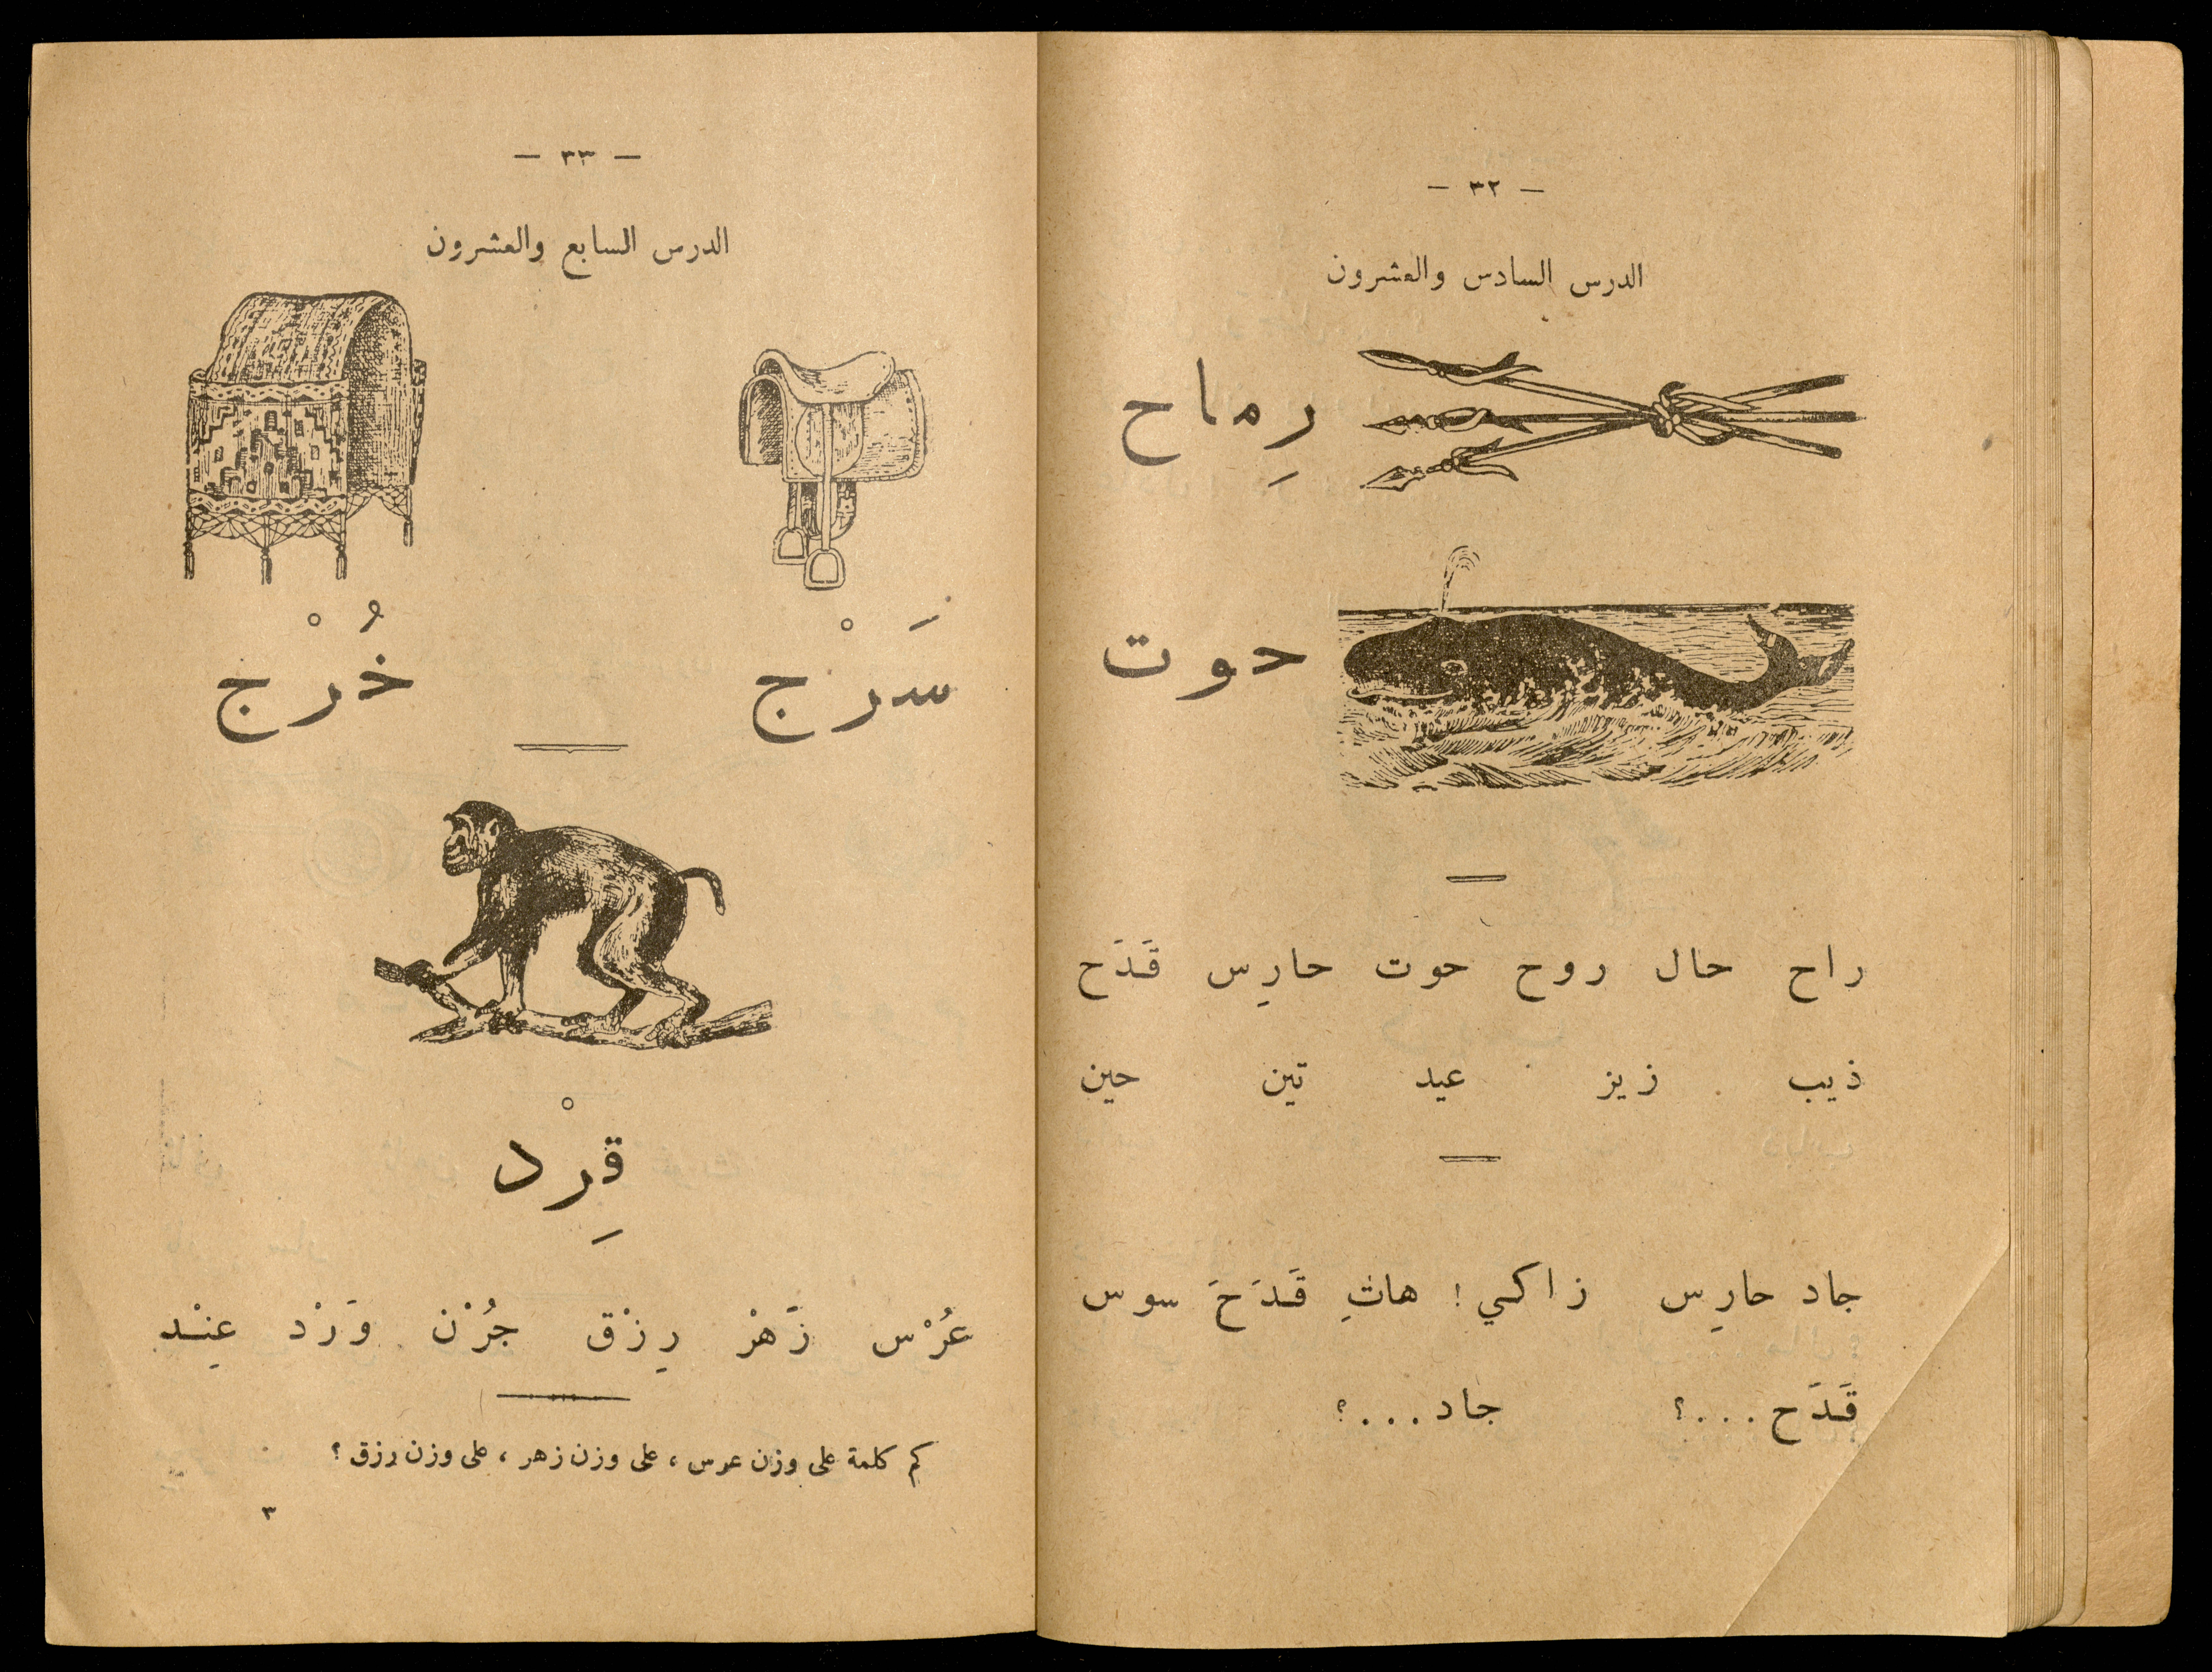 — ٣٢ —
الدرس السادس والعشرون
رِماح
حوت
راح حال روح حوت حارِس قَدَح
ذيب زيز عيد تين حين
جاد حارِس زاكي! هاتِ قَدَحَ سوس
قَدَح...؟ جاد...؟
— ٣٣ —
الدرس السابع والعشرون
سَرْج خُرْج
قِرْد
عُرْس زَهْر رِزْق جُرْن وَرْد عِنْد
كم كلمة على وزن عرس، على وزن زهر، على وزن رزق؟
٣